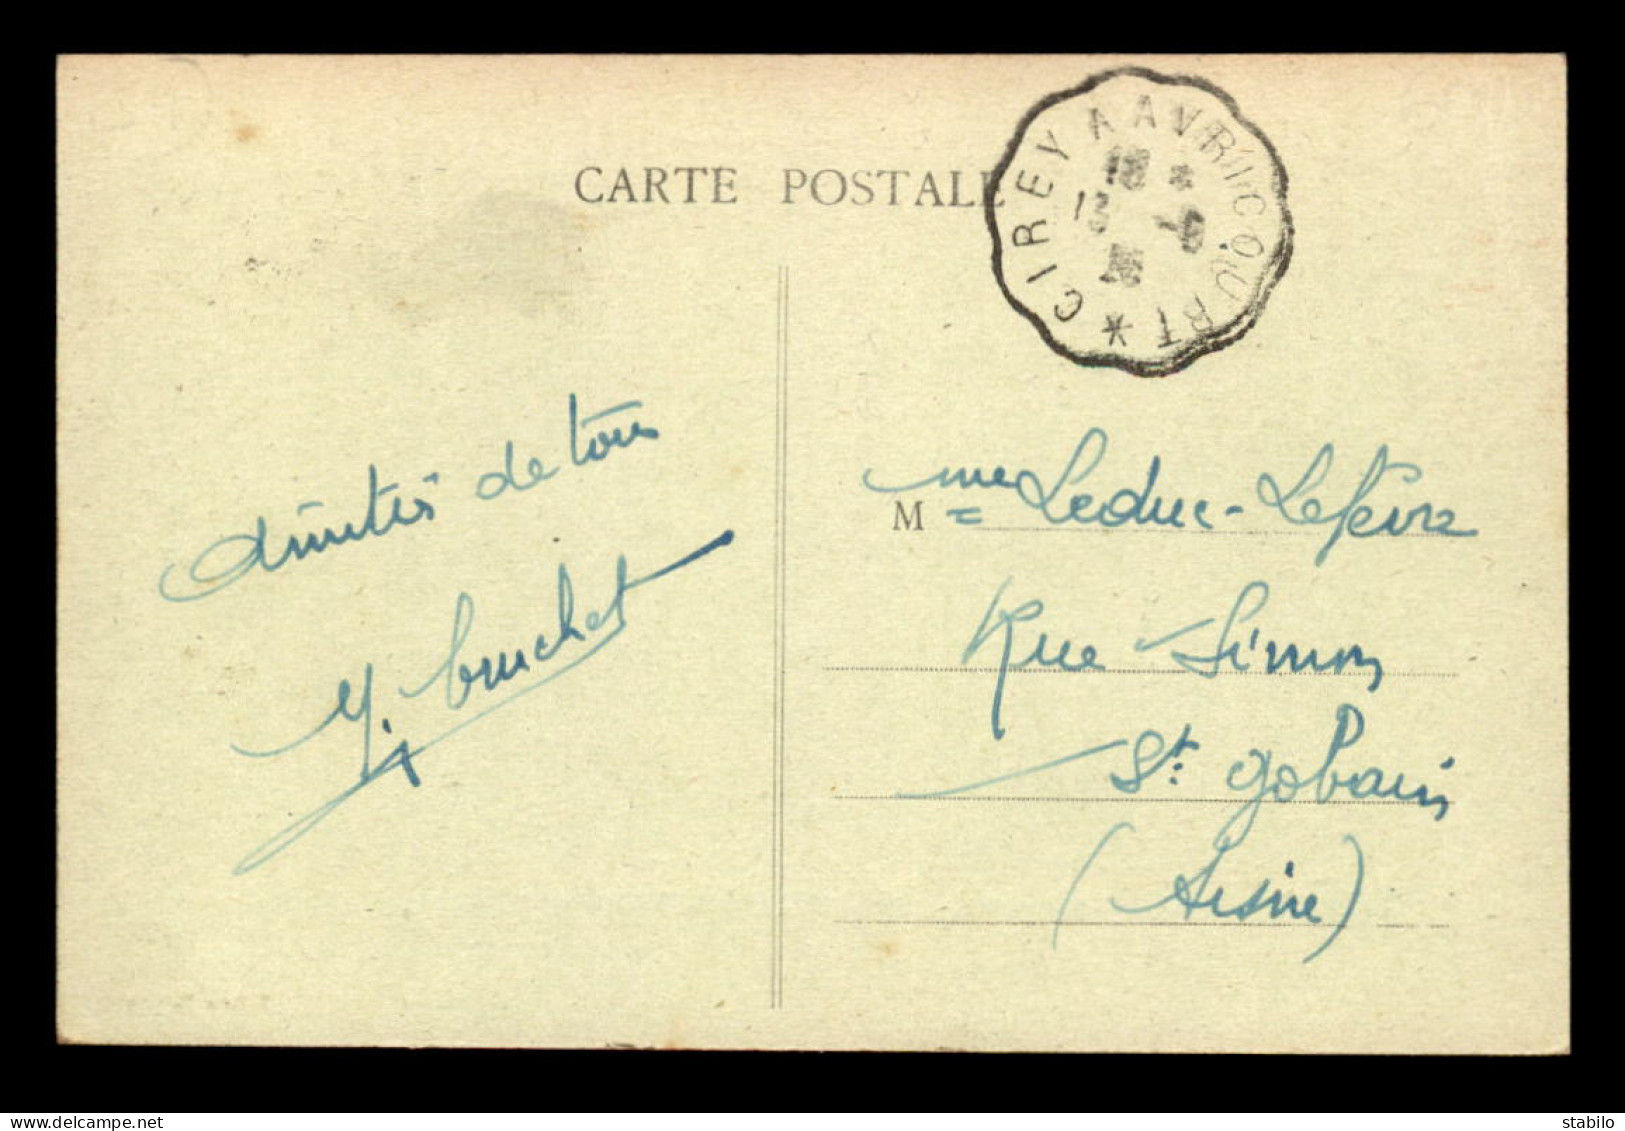 CARTE POSTALE
CIREY A AVRICOURT *
amitiés de tous
Y. Bruchet
Mme Leduc-Lefèvre
Rue Simon
St. Gobain
(Aisne)
stabilo